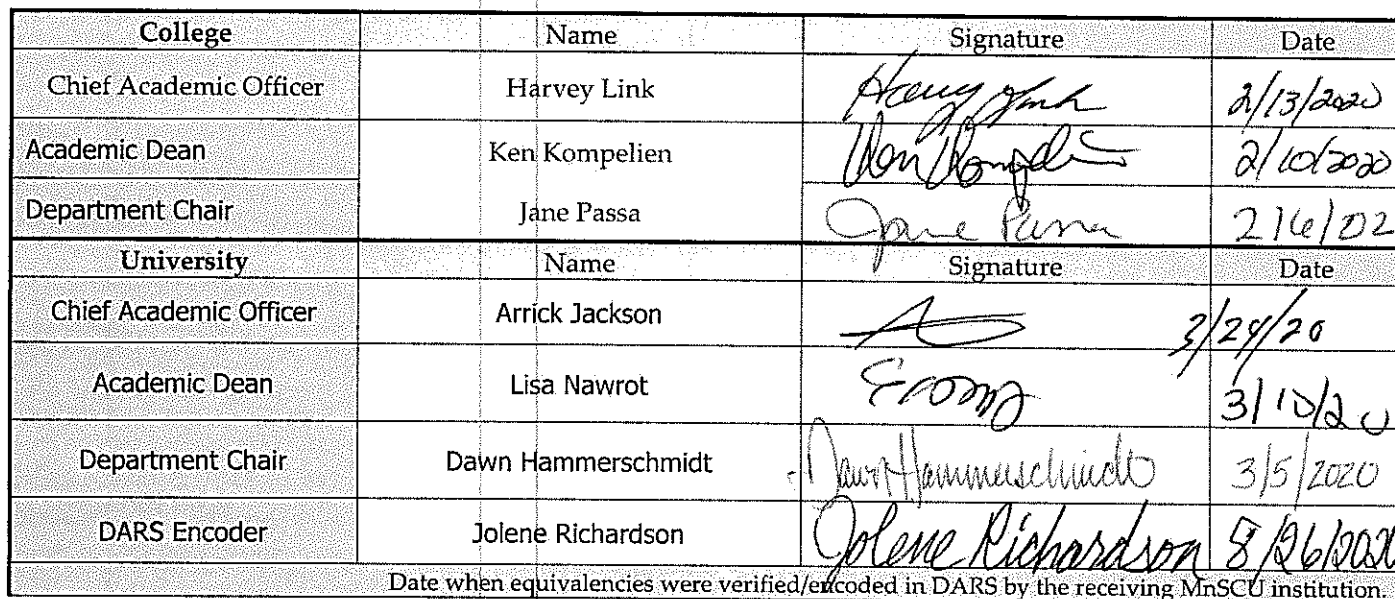 College Name Signature Date
Chief Academic Officer Harvey Link Harvey Link 2/13/2020
Academic Dean Ken Kompelien Ken Kompelien 2/10/2020
Department Chair Jane Passa Jane Passa 2/6/202
University Name Signature Date
Chief Academic Officer Arrick Jackson 3/24/20
Academic Dean Lisa Nawrot 3/10/20
Department Chair Dawn Hammerschmidt Dawn Hammerschmidt 3/5/2020
DARS Encoder Jolene Richardson Jolene Richardson 8/26/2020
Date when equivalencies were verified/encoded in DARS by the receiving MnSCU institution.